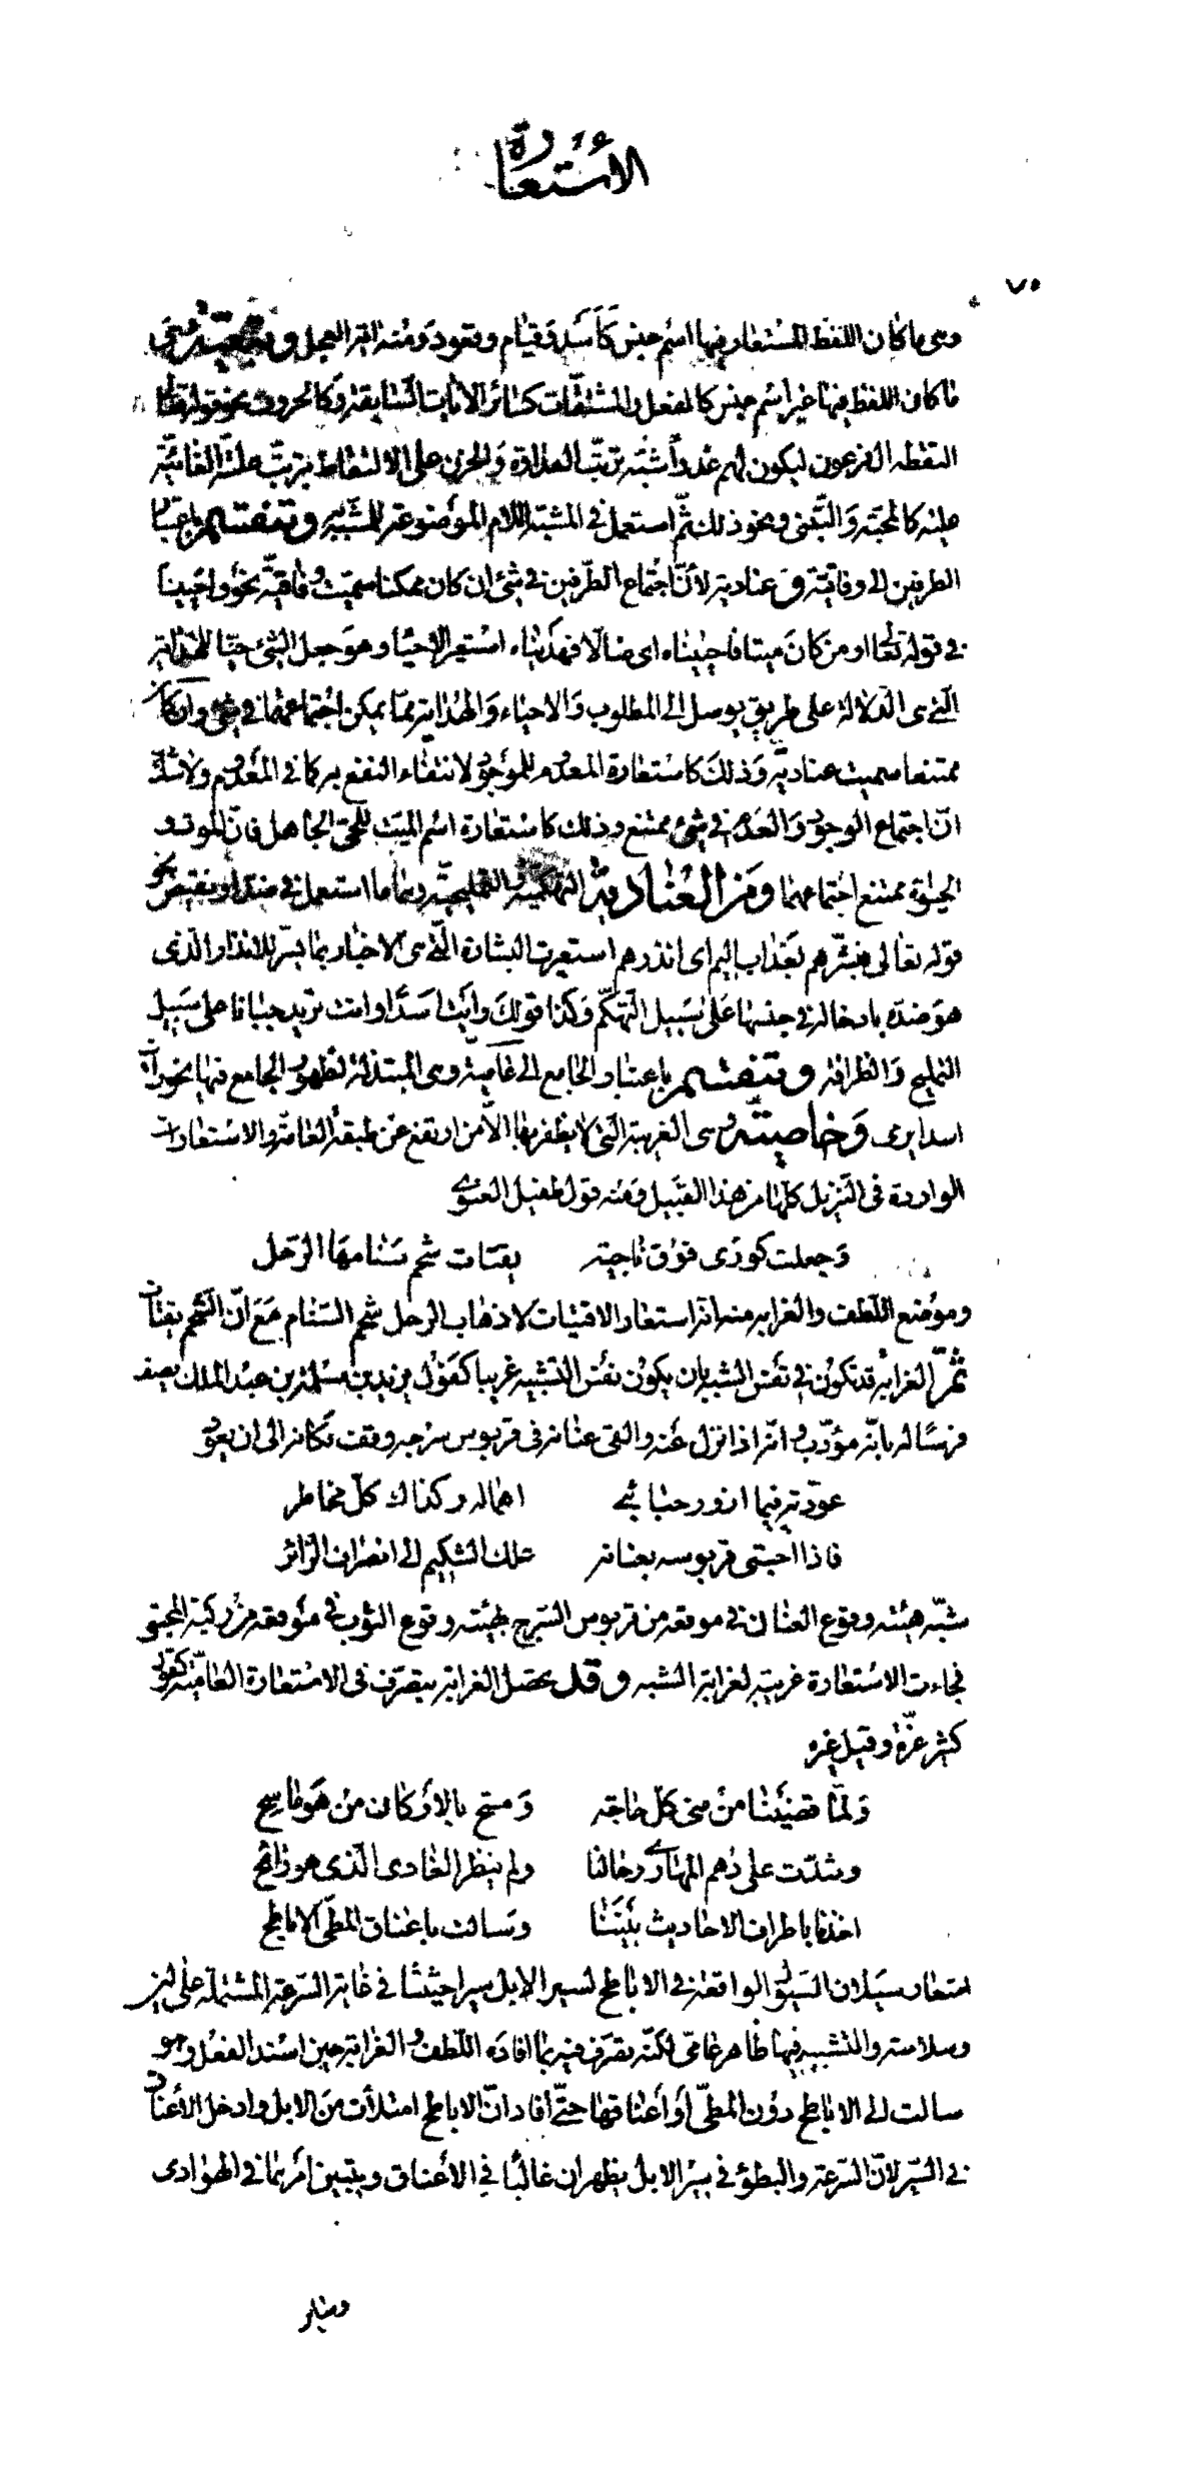 الاستعارة
٧٥
وهى ما كان اللفظ المستعار فيها اسم جنس كأسد وقيام وقعود ومنه آية العجل وتبعية وهى
ما كان اللفظ فيها غير اسم جنس كالفعل والمشتقات كسائر الآيات السابقة وكالحروف نحو قوله تعالى
فالتقطه آل فرعون ليكون لهم عدواً شبه ترتب العداوة والحزن على الالتقاط بترتب علته الغائية
عليه كالمحبة والتبنى ونحو ذلك ثم استعمل فى المشبه اللام الموضوعة للمشبه به وتنقسم باعتبار
الطرفين الى وفاقية وعنادية لأن اجتماع الطرفين فى شئ ان كان ممكنا سميت وفاقية نحو واحييناه
فى قوله تعالى او من كان ميتا فاحييناه اى ضالا فهديناه استعير الاحياء وهو جعل الشئ حيا للهداية
التى هى الدلالة على طريق يوصل الى المطلوب والاحياء والهداية مما يمكن اجتماعهما فى شئ وان كان
ممتنعا سميت عنادية وذلك كاستعارة المعدوم للموجود لانتفاء النفع به كما فى المعدوم ولا شك
ان اجتماع الوجود والعدم فى شئ ممتنع وذلك كاستعارة اسم الميت للحى الجاهل فان الموت و
الحيوة ممتنع اجتماعهما ومن العنادية التهكمية والتمليحية وهما ما استعمل فى ضده او نقيضه نحو
قوله تعالى فبشرهم بعذاب اليم اى انذرهم استعيرت البشارة التى هى الاخبار بما يسر للانذار الذى
هو ضده بادخاله فى جنسها على سبيل التهكم وكذا قولك رأيت اسدا وانت تريد جبانا على سبيل
التمليح والظرافة وتنقسم باعتبار الجامع الى عامية وهى المبتذلة لظهور الجامع فيها نحو رأيت
اسدا يرمى وخاصية وهى الغريبة التى لا يظفر بها الا من ارتفع عن طبقة العامة والاستعارات
الواردة فى التنزيل كلها من هذا القبيل ومنه قول طفيل الغنوى
وجعلت كورى فوق ناجية يقتات شحم سنامها الرحل
وموضع اللطف والغرابة منه انه استعار الاقتيات لاذهاب الرحل شحم السنام مع ان الشحم يقتات
ثم الغرابة قد تكون فى نفس الشبه بان يكون نفس التشبيه غريبا كقول يزيد بن مسلمة بن عبد الملك يصف
فرسا له بانه مؤدب وانه اذا نزل عنه والقى عنانه فى قربوس سرجه وقف مكانه الى ان يعود
عودته فيما ازور حبائبى اهماله وكذاك كل مخاطر
فاذا احتبى قربوسه بعنانه علك الشكيم الى انصراف الزائر
شبه هيئة وقوع العنان فى موقعه من قربوس السرج بهيئة وقوع الثوب فى موقعه من ركبة المحتبى
فجاءت الاستعارة غريبة لغرابة الشبه وقد تحصل الغرابة بتصرف فى الاستعارة العامية كقول
كثير عزة وقيل غيره
ولما قضينا من منى كل حاجة ومسح بالاركان من هو ماسح
وشدت على دهم المهارى رحالنا ولم ينظر الغادى الذى هو رائح
اخذنا باطراف الاحاديث بيننا وسالت باعناق المطى الاباطح
استعار سيلان السيول الواقعة فى الاباطح لسير الابل سيرا حثيثا فى غاية السرعة المشتملة على لين
وسلاسة والتشبيه فيها ظاهر عامى لكنه تصرف فيه بما افاده اللطف والغرابة حين اسند الفعل وهو
سالت الى الاباطح دون المطى او اعناقها حتى افاد ان الاباطح امتلأت من الابل وادخل الأعناق
فى السير لان السرعة والبطؤ فى سير الابل يظهران غالبا فى الأعناق ويتبين امرهما فى الهوادى